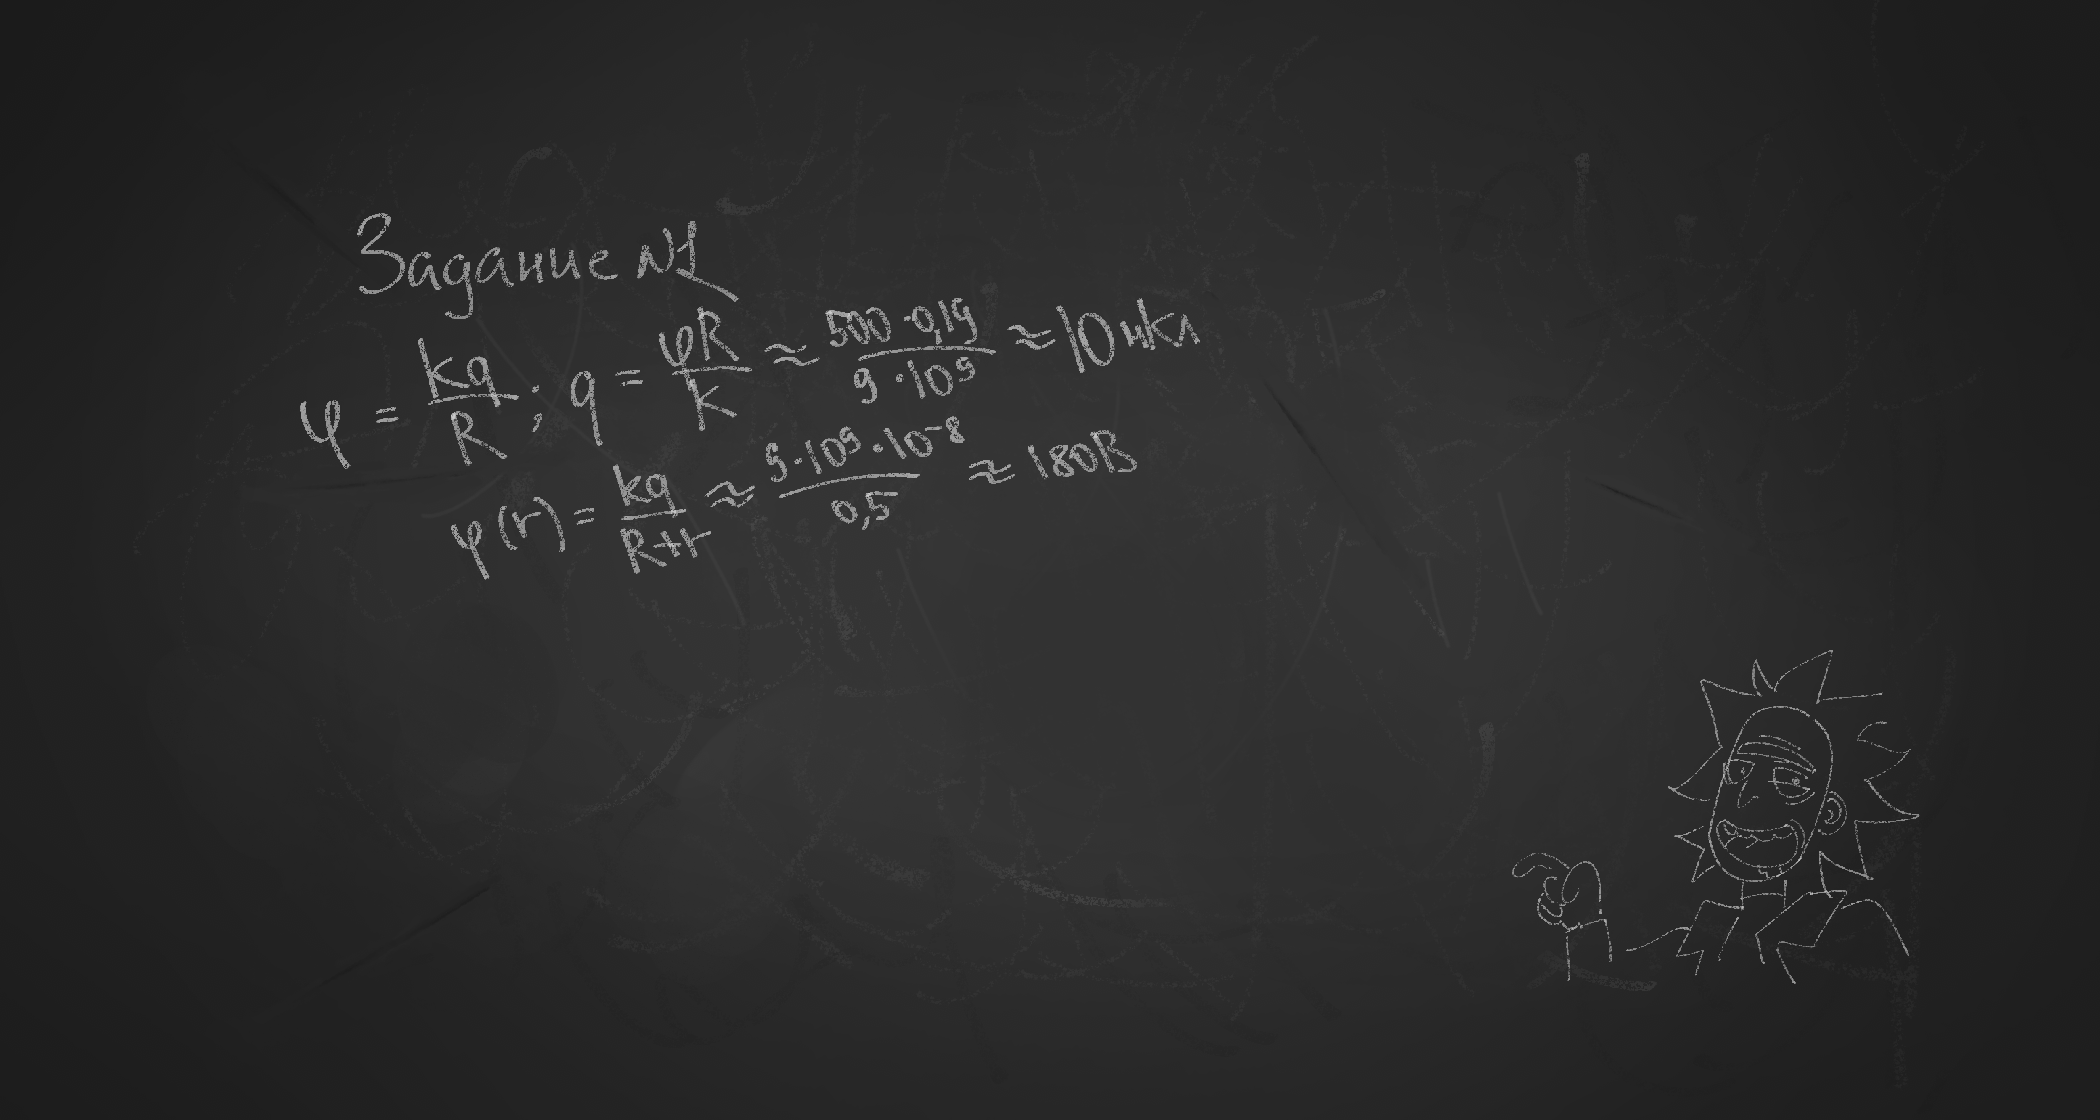 Задание №1
φ = kq/R ; q = φR/k ≈ 500·0,19/9·10⁹ ≈ 10 мкл
φ(r) = kq/R+r ≈ 9·10⁹·10⁻⁸/0,5 ≈ 180В